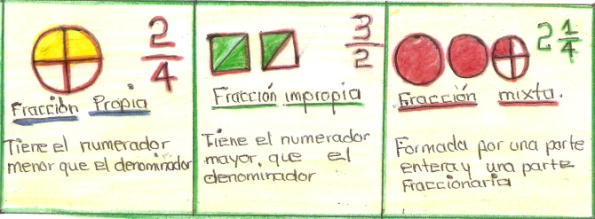 2/4
Fracción Propia
Tiene el numerador
menor que el denominador
3/2
Fracción impropia
Tiene el numerador
mayor, que el
denominador
2 1/4
Fracción mixta.
Formada por una parte
entera y una parte
Fraccionaria